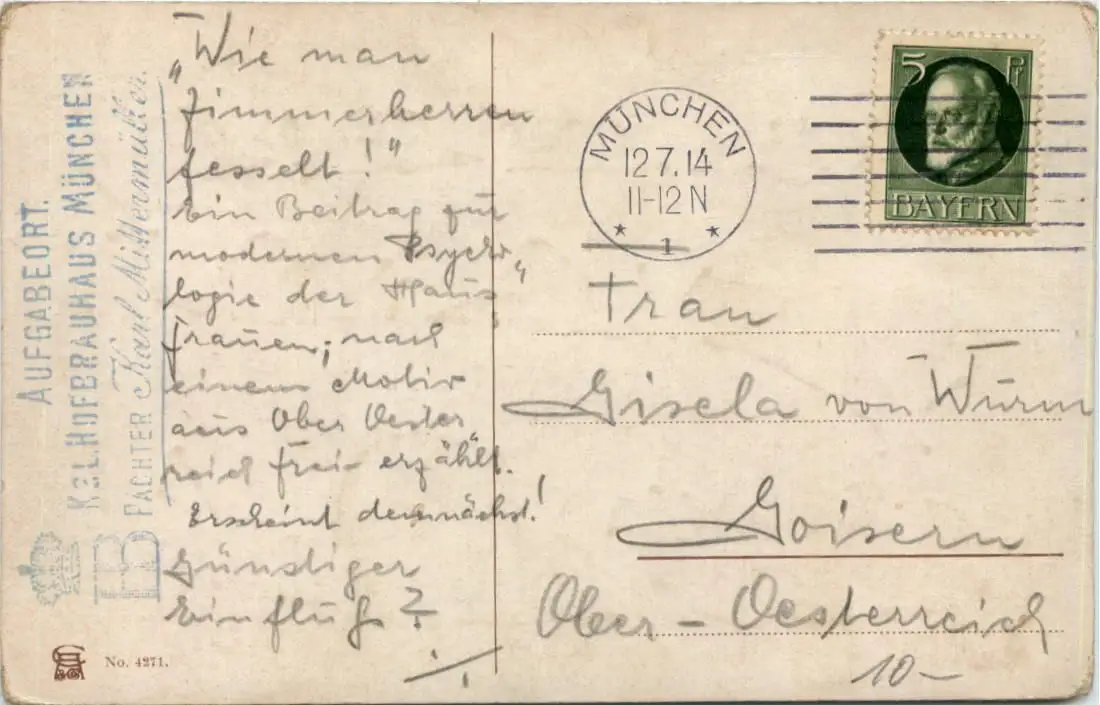 AUFGABEORT.
KGL. HOFBRAUHAUS MÜNCHEN
PÄCHTER Karl Mittermüller.
HB
No. 4271.
„Wie man
Zimmerherren
fesselt!“
Ein Beitrag zur
modernen Psycho„
logie der Haus„
frauen; nach
einem Motiv
aus Ober Oester
reich frei erzählt.
Erscheint demnächst!
Günstiger
Einfluß?
MÜNCHEN
12.7.14
11-12 N
* 1 *
5 Pf
BAYERN
Frau
Gisela von Wurm
Goisern
Ober-Oesterreich
10-